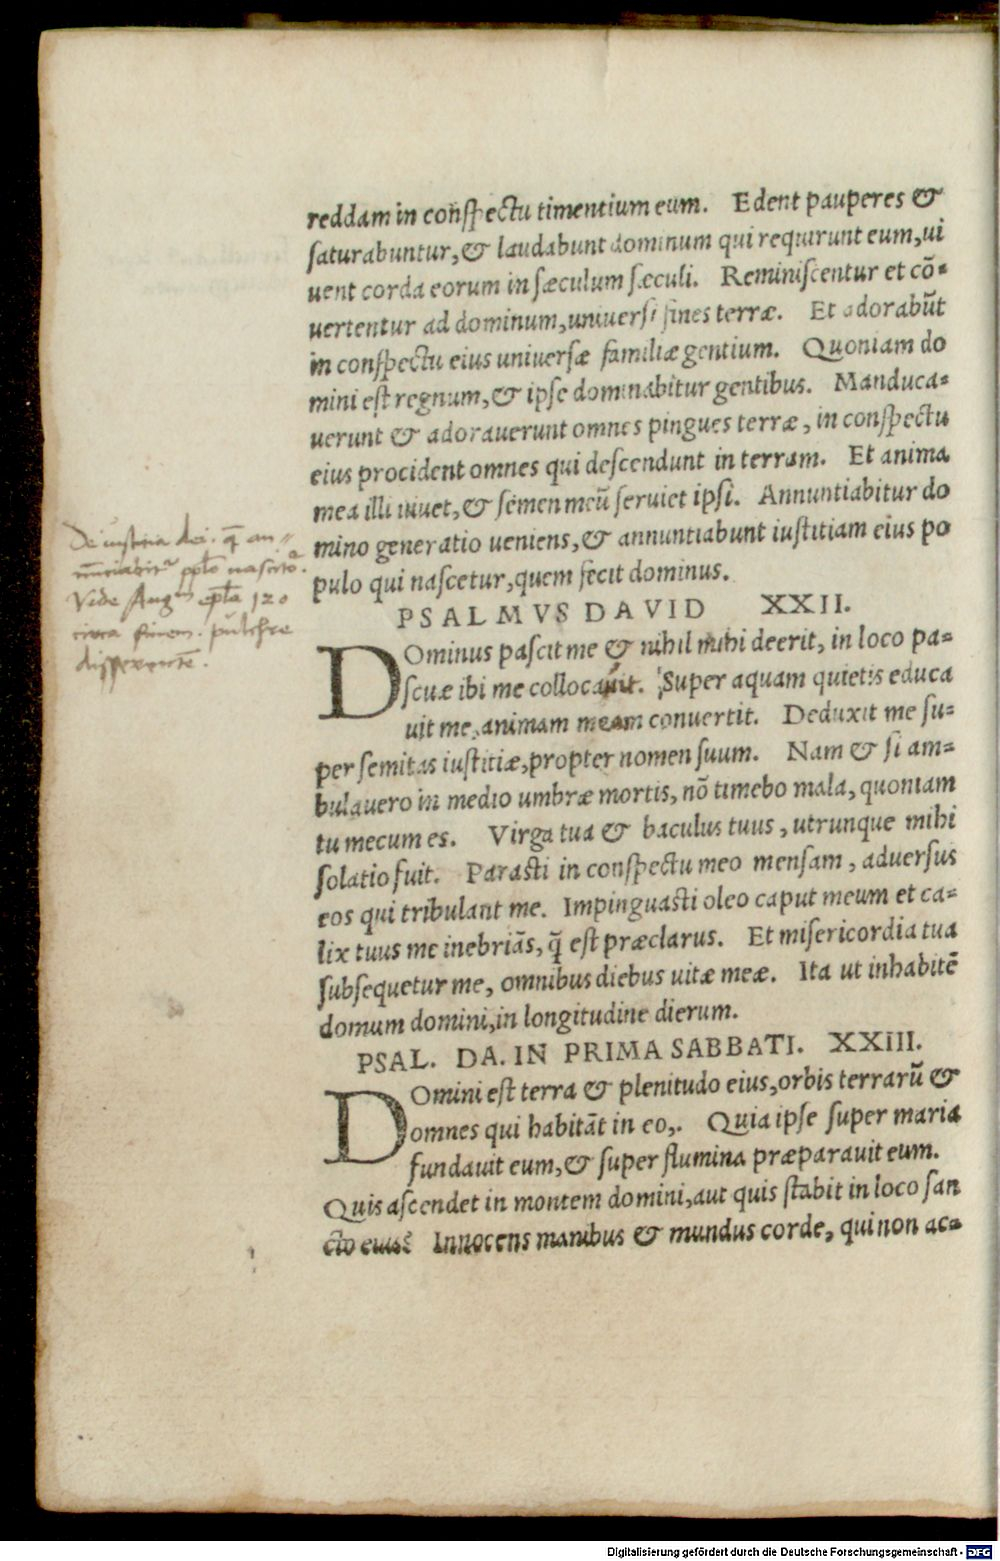 reddam in conſpectu timentium eum. Edent pauperes &
ſaturabuntur, & laudabunt dominum qui requirunt eum, ui
uent corda eorum in ſæculum ſæculi. Reminiſcentur et cō-
uertentur ad dominum, uniuerſi fines terræ. Et adorabūt
in conſpectu eius uniuerſæ familiæ gentium. Quoniam do
mini eſt regnum, & ipſe dominabitur gentibus. Manduca-
uerunt & adorauerunt omnes pingues terræ, in conſpectu
eius procident omnes qui deſcendunt in terram. Et anima
mea illi uiuet, & ſemen meū ſeruiet ipſi. Annuntiabitur do
mino generatio ueniens, & annuntiabunt iuſtitiam eius po
pulo qui naſcetur, quem fecit dominus.
De iustitia dei . q̄ an-
nunciabitr pplo nascito.
Vide Augm epla 120
circa finem . pulchre
disserentē.
PSALMVS DAVID XXII.
DOminus paſcit me & nihil mihi deerit, in loco pa-
ſcuæ ibi me collocauit. Super aquam quietis educa
uit me, animam meam conuertit. Deduxit me ſu-
per ſemitas iuſtitiæ, propter nomen ſuum. Nam & ſi am-
bulauero in medio umbræ mortis, nō timebo mala, quoniam
tu mecum es. Virga tua & baculus tuus, utrunque mihi
ſolatio fuit. Paraſti in conſpectu meo menſam, aduerſus
eos qui tribulant me. Impinguaſti oleo caput meum et ca-
lix tuus me inebriās, q̄ eſt præclarus. Et miſericordia tua
ſubſequetur me, omnibus diebus uitæ meæ. Ita ut inhabitē
domum domini, in longitudine dierum.
PSAL. DA. IN PRIMA SABBATI. XXIII.
DOmini eſt terra & plenitudo eius, orbis terrarū &
omnes qui habitāt in eo,. Quia ipſe ſuper maria
fundauit eum, & ſuper flumina præparauit eum.
Quis aſcendet in montem domini, aut quis ſtabit in loco ſan
cto eius? Innocens manibus & mundus corde, qui non ac-
Digitalisierung gefördert durch die Deutsche Forschungsgemeinschaft - DFG